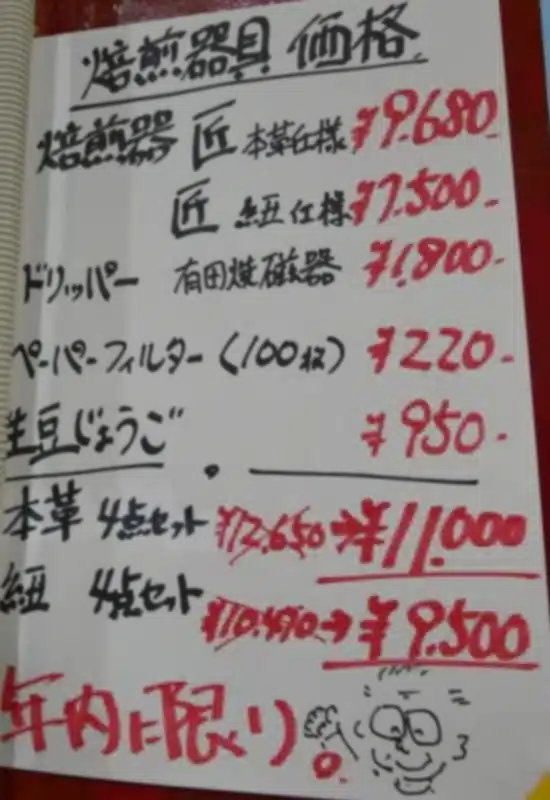 焙煎器具 価格
焙煎器 匠 本革仕様 ¥9.680-
匠 紐仕様 ¥7.500-
ドリッパー 有田焼磁器 ¥1.800-
ペーパーフィルター (100枚) ¥220-
生豆じょうご ¥950-
本革 4点セット ¥12.650→¥11.000
紐 4点セット ¥10.470→¥9.500
年内に限り。